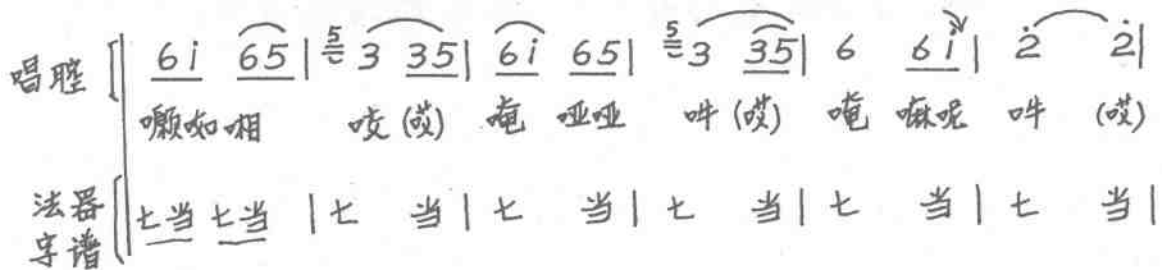 唱腔 6 i 6 5 | 5 3 3 5 | 6 i 6 5 | 5 3 3 5 | 6 6 i | 2 2 |
㘔㘕啊 吱(哎) 唵 哑哑 吽(哎) 唵 嘛呢 吽 (哎)
法器字谱 七当 七当 | 七 当 | 七 当 | 七 当 | 七 当 | 七 当 |